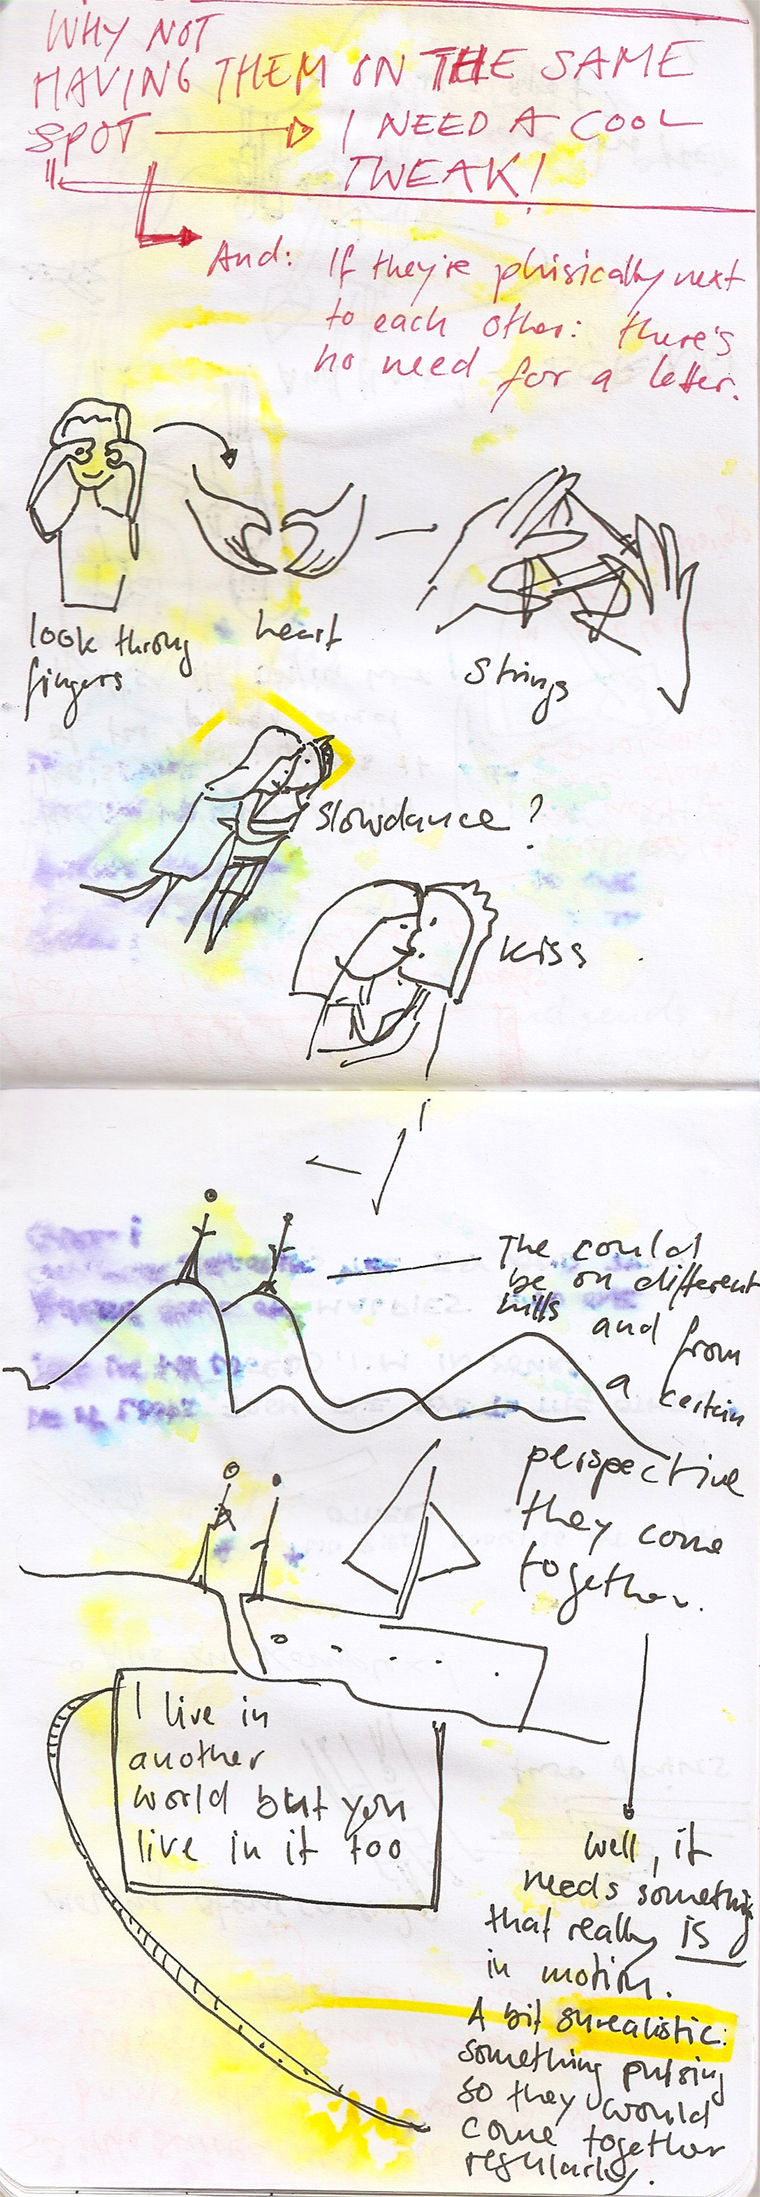 WHY NOT
HAVING THEM ON THE SAME
SPOT → I NEED A COOL
TWEAK!
And: If they're phisically next
to each other: there's
no need for a letter.
look throug
fingers
heart
Strings
Slowdance?
Kiss
The could
be on different
hills and from
a certain
perspective
they come
together.
I live in
another
world but you
live in it too
Well, it
needs something
that really is
in motion.
A bit surealistic:
something pulsing
so they would
come together
regularly.